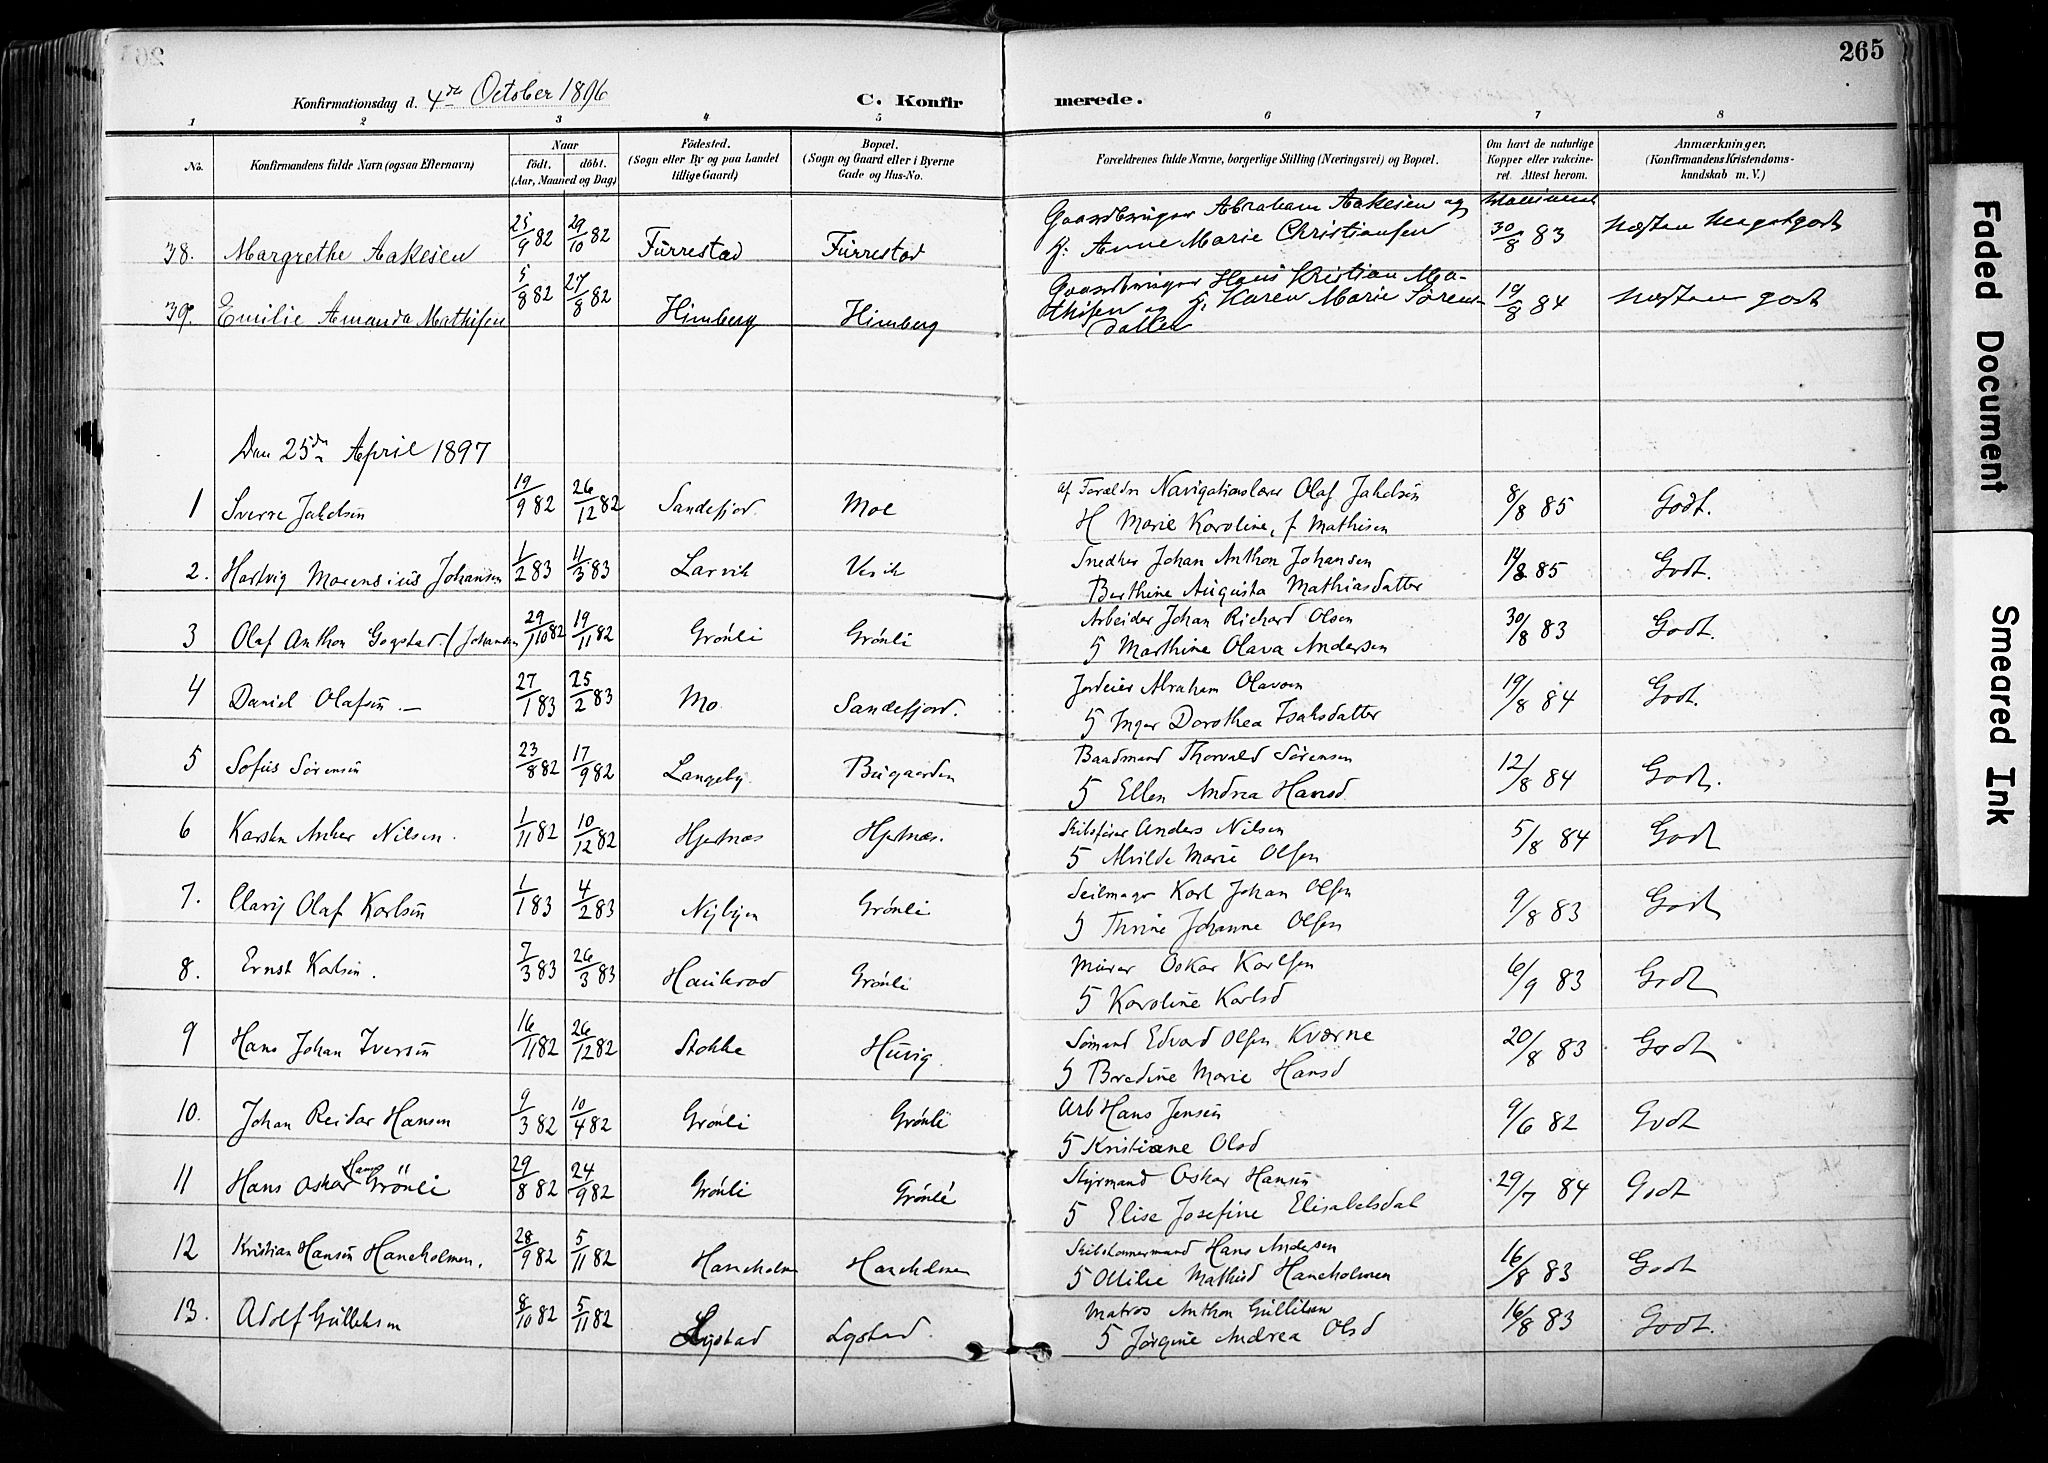 265
Konfirmationsdag d. 4de October 1896
C. Konfirmerede.
1 2 3 4 5 6 7 8
No.
Konfirmandens fulde Navn (ogsaa Efternavn)
Naar
födt. döbt.
(Aar, Maaned og Dag)
Födested.
(Sogn eller By og paa Landet
tillige Gaard)
Bopæl.
(Sogn og Gaard eller i Byerne
Gade og Hus-No.
Forældrenes fulde Navne, borgerlige Stilling (Næringsvei) og Bopæl.
Om havt de naturlige
Kopper eller vakcine-
ret. Attest herom.
Anmærkninger.
(Konfirmandens Kristendoms-
kundskab m. V.)
38. Margrethe Aakesen 25/9 82 29/10 82 Furrestad Furrestad Gaardbruger Abraham Aakesen og
H. Anne Marie Christiansen 30/8 83 Næsten meget godt
39. Emilie Amanda Mathisen 5/8 82 27/8 82 Himberg Himberg Gaardbruger Hans Kristian Ma-
thisen og H. Karen Marie Sörens
datter 19/8 84 Næsten godt
Den 25de April 1897
1 Sverre Jakelsen 19/9 82 26/12 82 Sandefjord. Moe af Forældre Navigationslærer Olaf Jakelsen
H Marie Karoline, f. Mathisen 8/8 85 Godt.
2. Hartvig Marensius Johansen 1/2 83 11/3 83 Larvik Vesik Snedker Johan Anthon Johansen
Berthine Augusta Mathiasdatter 14/8 85 Godt.
3 Olaf Anthon Gogstad (Johansen) 29/10 82 19/11 82 Grönli Grönli Arbeider Johan Richard Olsen
H Marthine Olava Andersen 30/8 83 Godt.
4 Daniel Olafsen 27/1 83 25/2 83 Mo Sandefjord. Jordeier Abraham Olavsen
H Inger Dorothea Isaksdatter 19/8 84 Godt.
5 Sofus Sörensen 23/8 82 17/9 82 Langeby. Bugaarden Baadmand Thorvald Sörensen
H Ellen Andrea Hansd. 12/8 84 Godt.
6 Karsten Anker Nilsen. 1/11 82 10/12 82 Hjertnæs Hjertnæs. Skibsförer Anders Nilsen
H Alvilde Marie Olsen 5/8 84 Godt
7. Olaf Karlsen 1/1 83 4/2 83 Nybyen Grönli Seilmager Karl Johan Olsen
H Thrine Johanne Olsen 9/8 83 Godt
8. Ernst Karlsen. 7/3 83 26/3 83 Haukerød Grönli Murer Oskar Karlsen
H Karoline Karlsd 6/9 83 Godt
9 Hans Johan Iversen 16/11 82 26/12 82 Stokke Huvig. Sömand Edvard Olsen Kværne
H Bredine Marie Hansd 20/8 83 Godt
10. Johan Reidar Hansen 9/3 82 10/4 82 Grönli Grönli Arb Hans Jensen
H Kristiane Olsd 9/6 82 Godt
11 Hans Oskar Hans Grönli 29/8 82 24/9 82 Grönli Grönli Styrmand Oskar Hansen
H Elise Josefine Elisabetsdat 29/7 84 Godt
12 Kristian Hansen Haneholmen. 28/9 82 5/11 82 Haneholm Haneholmen Skibstømmermand Hans Andersen
H Ottilie Mathisd Haneholmen 16/8 83 Godt
13. Adolf Gulliksen 8/10 82 5/11 82 Lystad Lystad. Matros Anthon Gulliksen
H Jörgine Andrea Olsd 16/8 83 Godt.
Faded Document
Smeared Ink